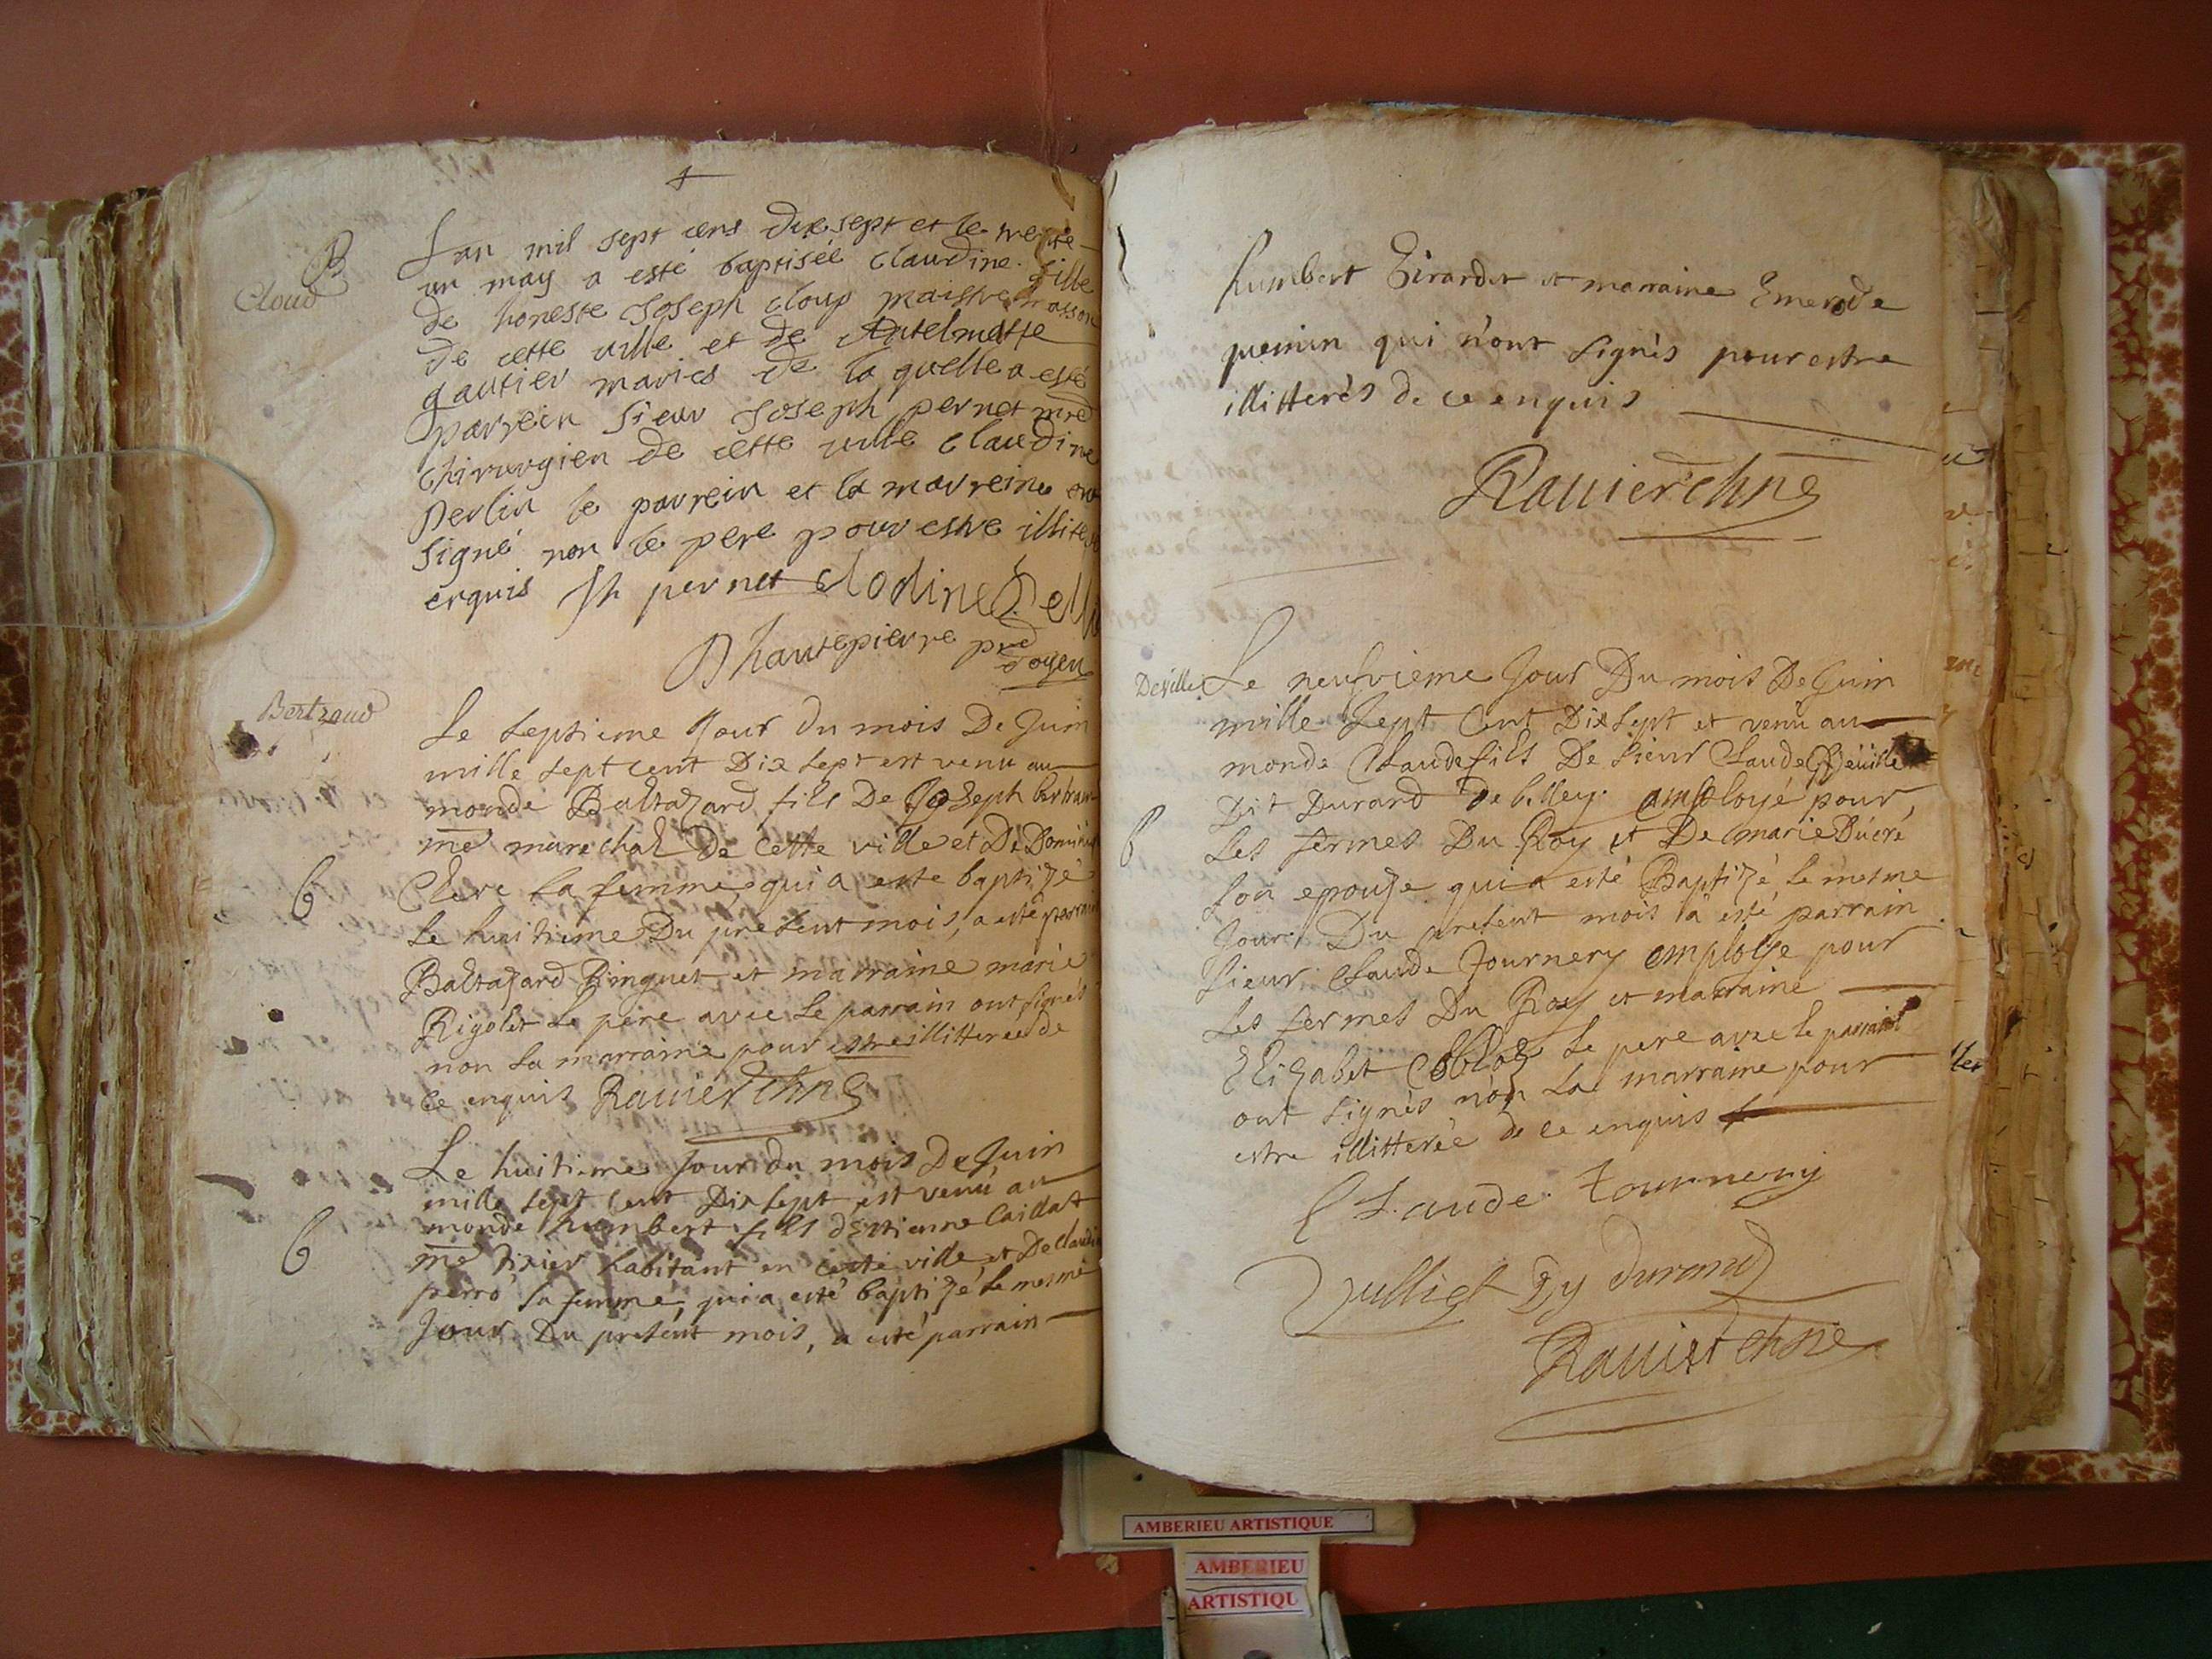 B
Cloud
L'an mil sept cens dixsept et le trente
un may a esté baptisée claudine fille
de honeste Joseph cloup maistre masson
de cette ville et de Antelmette
gautier mariés de laquelle a esté
parrein sieur Joseph pernet mre
chirurgien de cette ville claudine
perlin le parrein et la marreine on
signé non le pere pour estre illite
enquis Jh pernet clodine
Dhautepierre prd
doyen
Bertraud
Le septieme Jour du mois De Juin
mille sept cent Dix sept est venu au
monde Baltazard fils De Joseph bertran
me mârechal De cette ville et De Domini
Clere sa femme, qui a esté baptizé
b
Le huitieme Du present mois, a esté parrain
Baltazard Ringuet et marraine marie
Rigolet Le pere avec Le parrain ont signés
non La marraine pour estre illitterée de
ce enquis Rauier chne
Le huitieme Jour du mois De Juin
mille sept cent Dix sept est venu au
monde humbert fils d'Estienne Caillat
b
me tixier habitant en cette ville et De Claudi
perro sa femme, qui a esté baptizé Le mesme
Jour Du present mois, a esté parrain
humbert Girardet et marraine Emerode
qui n'ont signés pour estre
illitterés de ce enquis
Rauier chne
Deville
Le neufvieme Jour Du mois De Juin
mille sept Cent Dix sept et venu au
monde Claude fils De sieur Claude
Dit Durand de belley employé pour
b
Les fermes Du Roy et De marie Ducré
son epouze qui a esté Baptizé Le mesme
Jour Du present mois a esté parrain
sieur Claude Tournery employe pour
Les fermes Du Roy et marraine
Elizabet Le pere avec le parrain
ont signés non La marraine pour
estre illitterée de ce enquis
Claude Tournery
Dy durand
Rauier chne
AMBERIEU ARTISTIQUE
AMBERIEU
ARTISTIQU